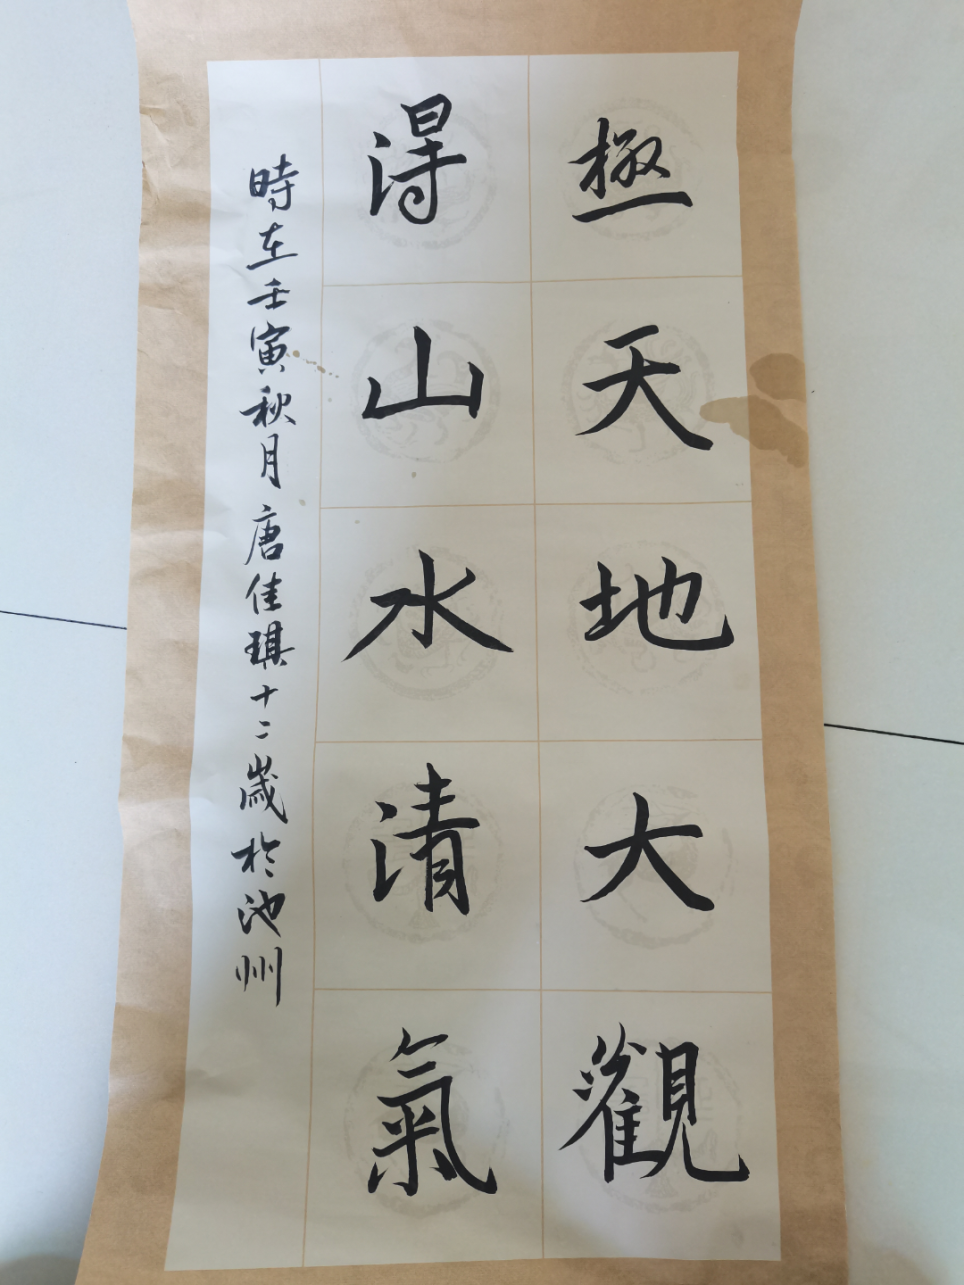 極天地大觀
淂山水清氣
時在壬寅秋月唐佳琪十二歲於池州